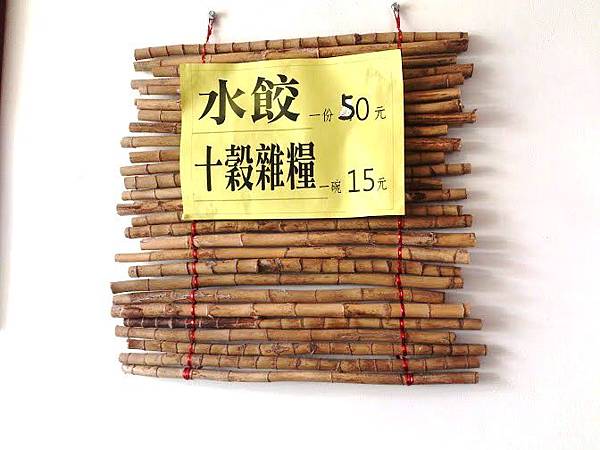 水餃一份50元
十穀雜糧一碗15元